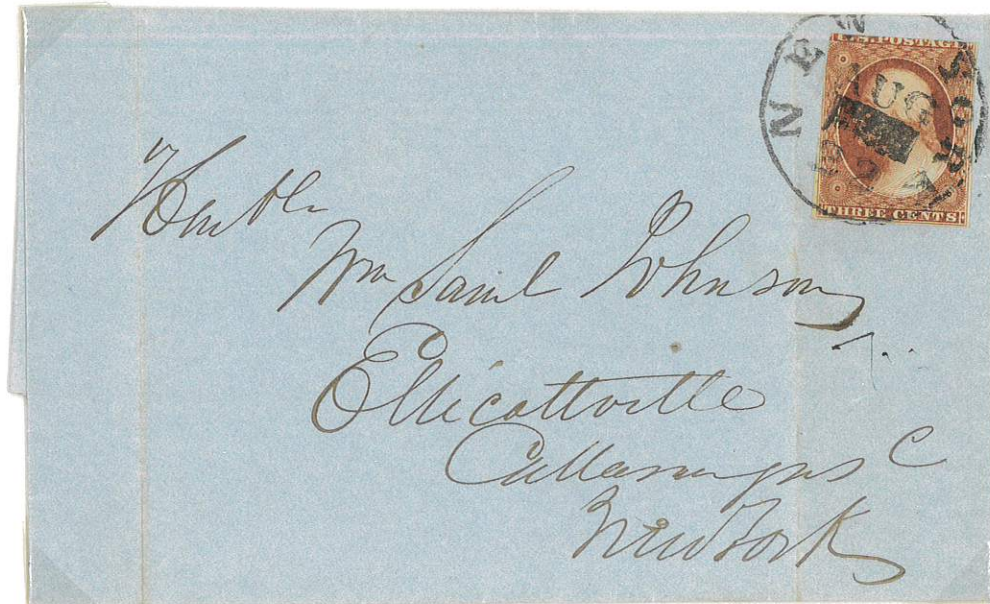 NEW YORK
AUG
U.S. POSTAGE
THREE CENTS
Honble
Wm Saml Johnson
Ellicottville
Cattaraugus C
New York